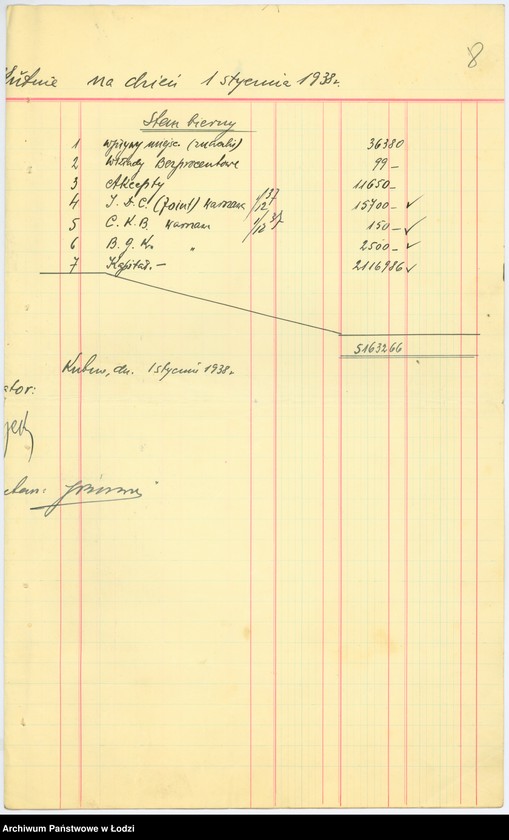 8
Kutnie na dzień 1 stycznia 1938 r.
Stan bierny
1 wpływy miejsc (zwłaki) 36380
2 Wkłady Bezprocentowe 99 –
3 Akcepty 11650 –
4 J. D. C. (Joint) Warszawa 1/12 37 15700 –
5 C. K. B. Warszawa 1/12 37 150 –
6 B. G. K. " 2500 –
7 Kapitał. – 2116986
5163266
Kutno, dn. 1 styczni 1938 r.
ator:
Archiwum Państwowe w Łodzi